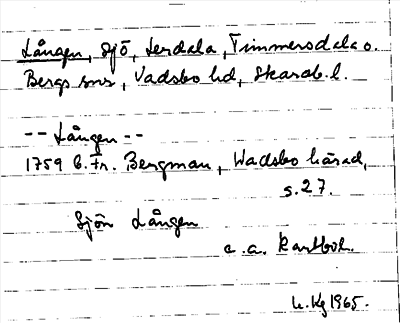 Lången, sjö, Lerdala, Timmersdala o.
Bergs snr, Vadsbo hd, Skarab. l.
-- Lången --
1759 C. Fr. Bergman, Wadsbo härad,
s. 27.
Sjön Lången
a. a. kartbok.
Kg 1965.